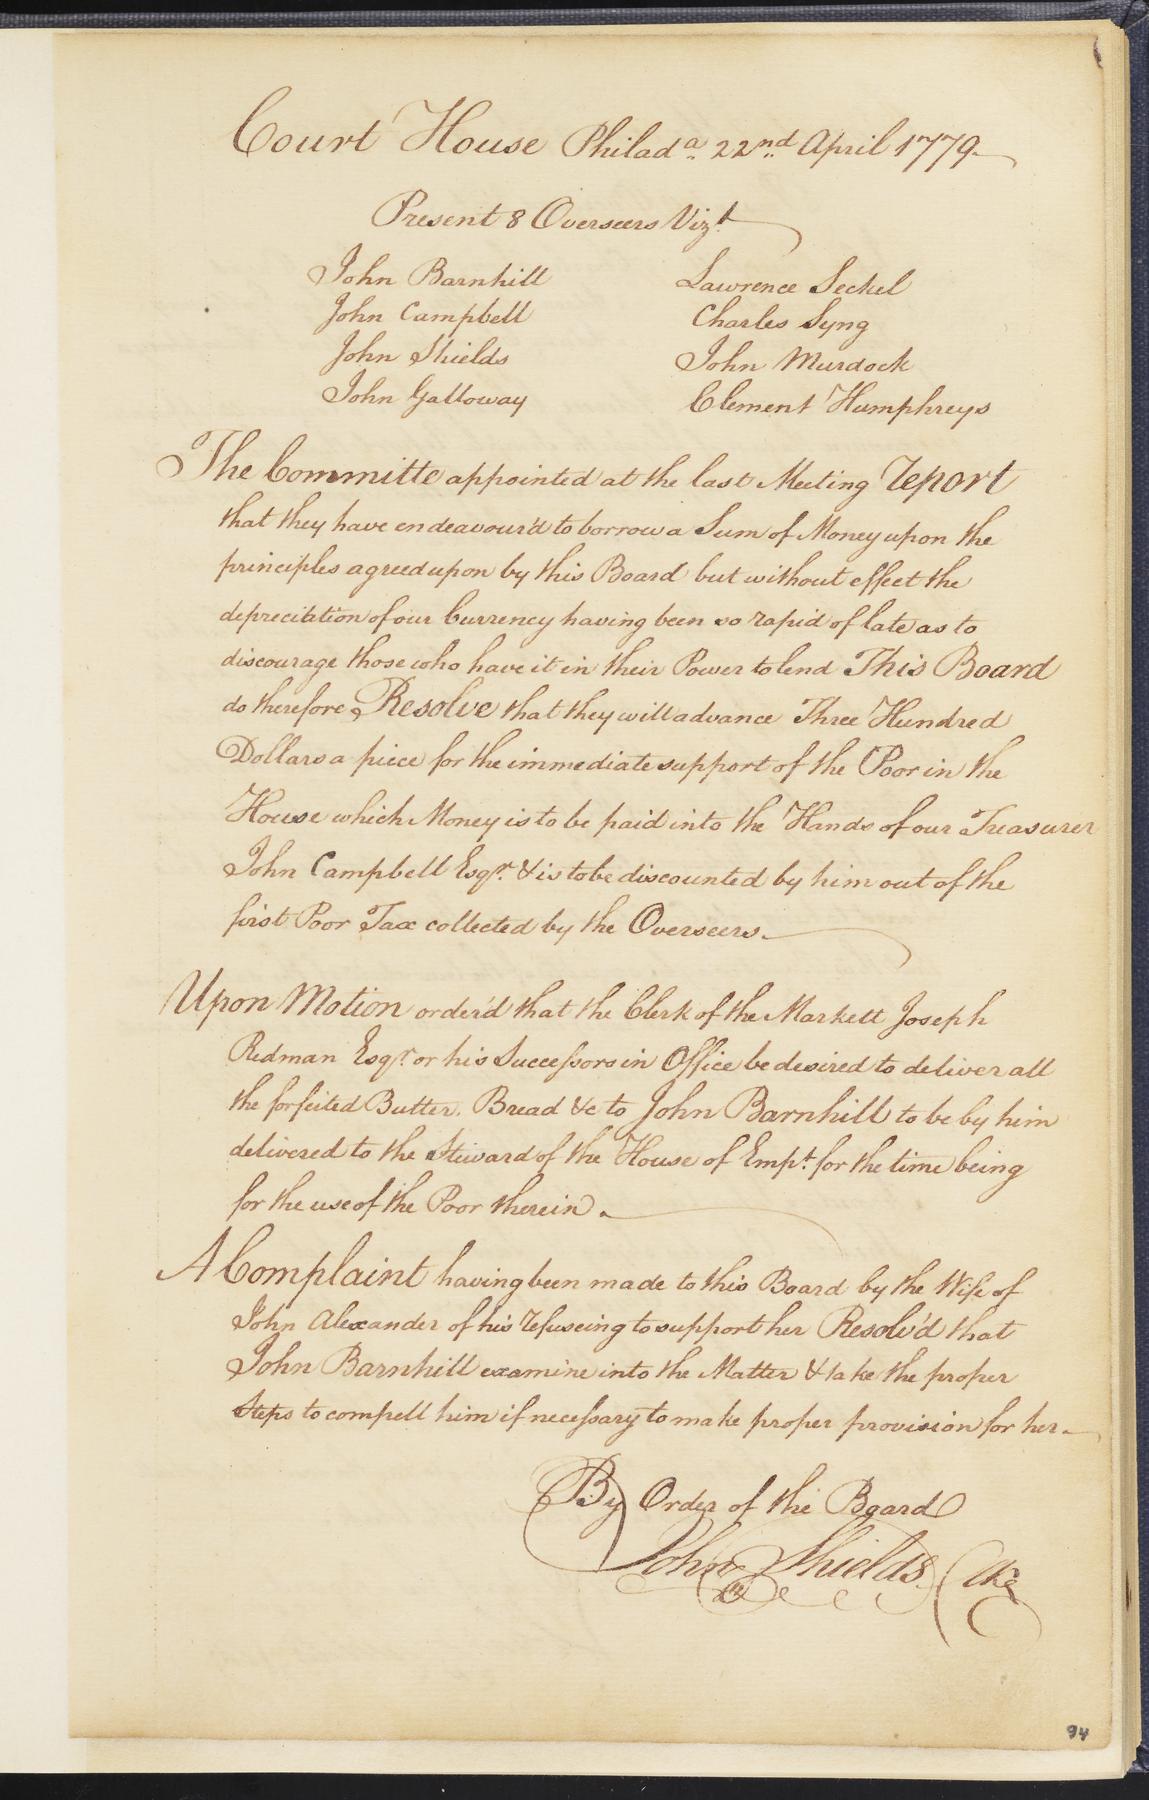 Court House Philad.a 22nd April 1779
Present 8 Overseers Vizt
John Barnhill Lawrence Seckel
John Campbell Charles Syng
John Shields John Murdock
John Galloway Clement Humphreys
The Committe appointed at the last Meeting report
that they have endeavour'd to borrow a Sum of Money upon the
principles agreed upon by this Board but without effect the
depreciation of our Currency having been so rapid of late as to
discourage those who have it in their Power to lend This Board
do therefore Resolve that they will advance Three Hundred
Dollars a piece for the immediate support of the Poor in the
House which Money is to be paid into the Hands of our Treasurer
John Campbell Esqr. & is to be discounted by him out of the
first Poor Tax collected by the Overseers.
Upon Motion order'd that the Clerk of the Markett Joseph
Redman Esqr. or his Successors in Office be desired to deliver all
the forfeited Butter, Bread &c to John Barnhill to be by him
delivered to the Steward of the House of Empt. for the time being
for the use of the Poor therein.
A Complaint having been made to this Board by the Wife of
John Alexander of his refuseing to support her Resolv'd that
John Barnhill examine into the Matter & take the proper
Steps to compell him if necessary to make proper provision for her.
By Order of the Board
John Shields Clk
94